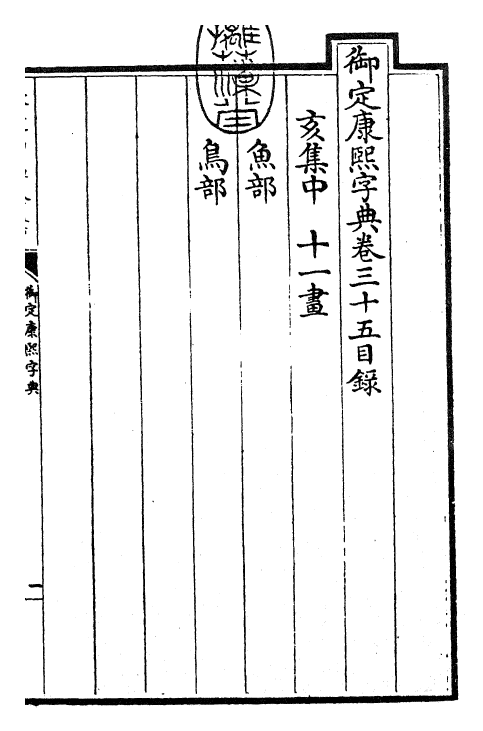 御定康熙字典卷三十五目錄
亥集中　十一畫
魚部
鳥部
御定康熙字典
一